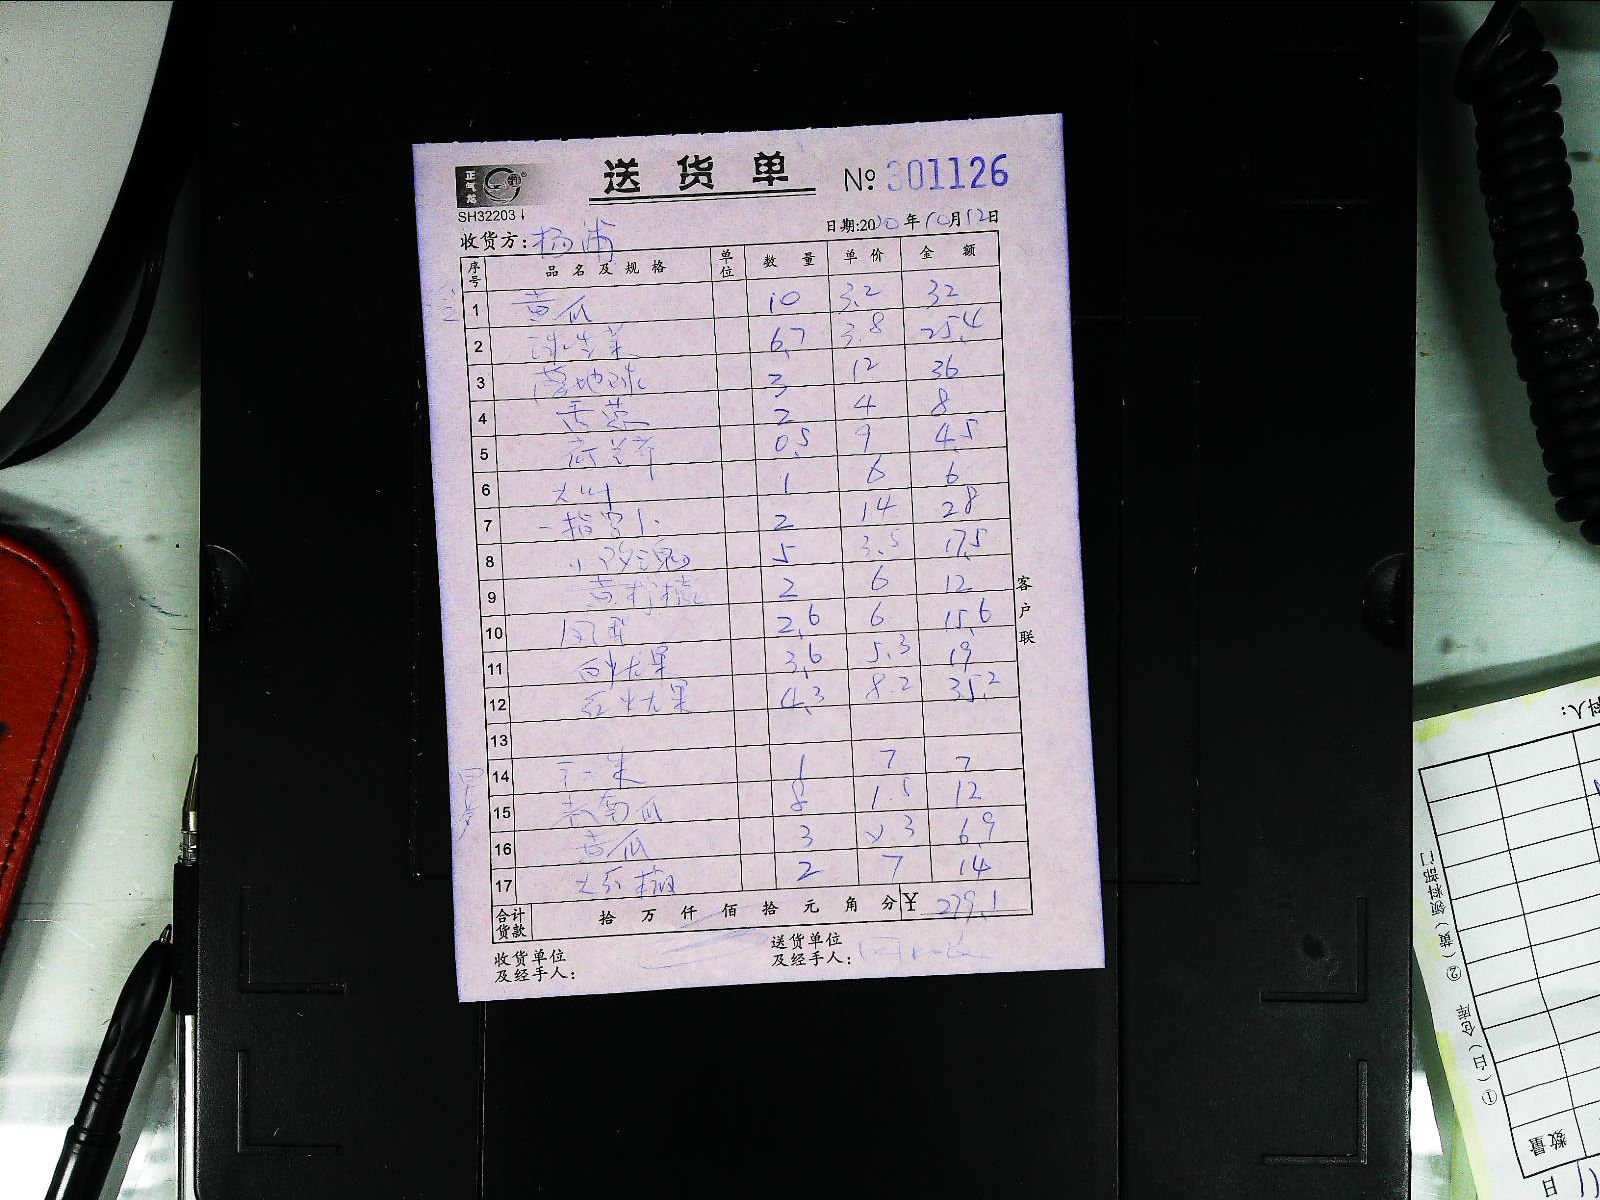 正气龙
送货单 № 301126
SH32203
收货方:杨浦 日期:2020年10月12日
序号 品名及规格 单位 数量 单价 金额
1 黄瓜 10 3.2 32
2 球生菜 6.7 3.8 25.4
3 3 12 36
4 香菜 2 4 8
5 荷兰芹 0.5 9 4.5
6 大叶 1 6 6
7 2 14 28
8 5 3.5 17.5
9 黄柠檬 2 6 12
10 2.6 6 15.6
11 白火龙果 3.6 5.3 19
12 红火龙果 4.3 8.2 35.2
13
14 1 7 7
15 老南瓜 8 1.5 12
16 黄瓜 3 2.3 6.9
17 大红椒 2 7 14
合计货款 拾 万 仟 佰 拾 元 角 分 ¥ 279.1
收货单位 送货单位
及经手人: 及经手人:
客户联
料人:
领料部门
①(白)仓库 ②(黄)
数量
日